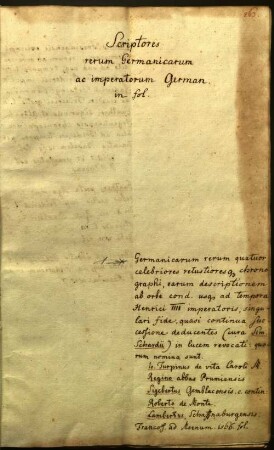 Scriptores
rerum Germanicarum
ac imperatorum German.
in fol.
1
Germanicarum rerum quatuor
celebriores vetustioresq; chrono
graphi, earum descriptionem
ab orbe cond. usq; ad tempora
Henrici IIII imperatoris, singu
lari fide, quasi continua suc
cessione deducentes (cura Sim.
Schardii) in lucem revocati quo
rum nomina sunt.
Io. Turpinus de vita Caroli M.
Regino abbas Prumiensis
Sigebertus Gemblacensis. c. contin
Roberti de Monte.
Lambertus, Schaffnaburgensis
Francof. ad Moenum 1566. fol.